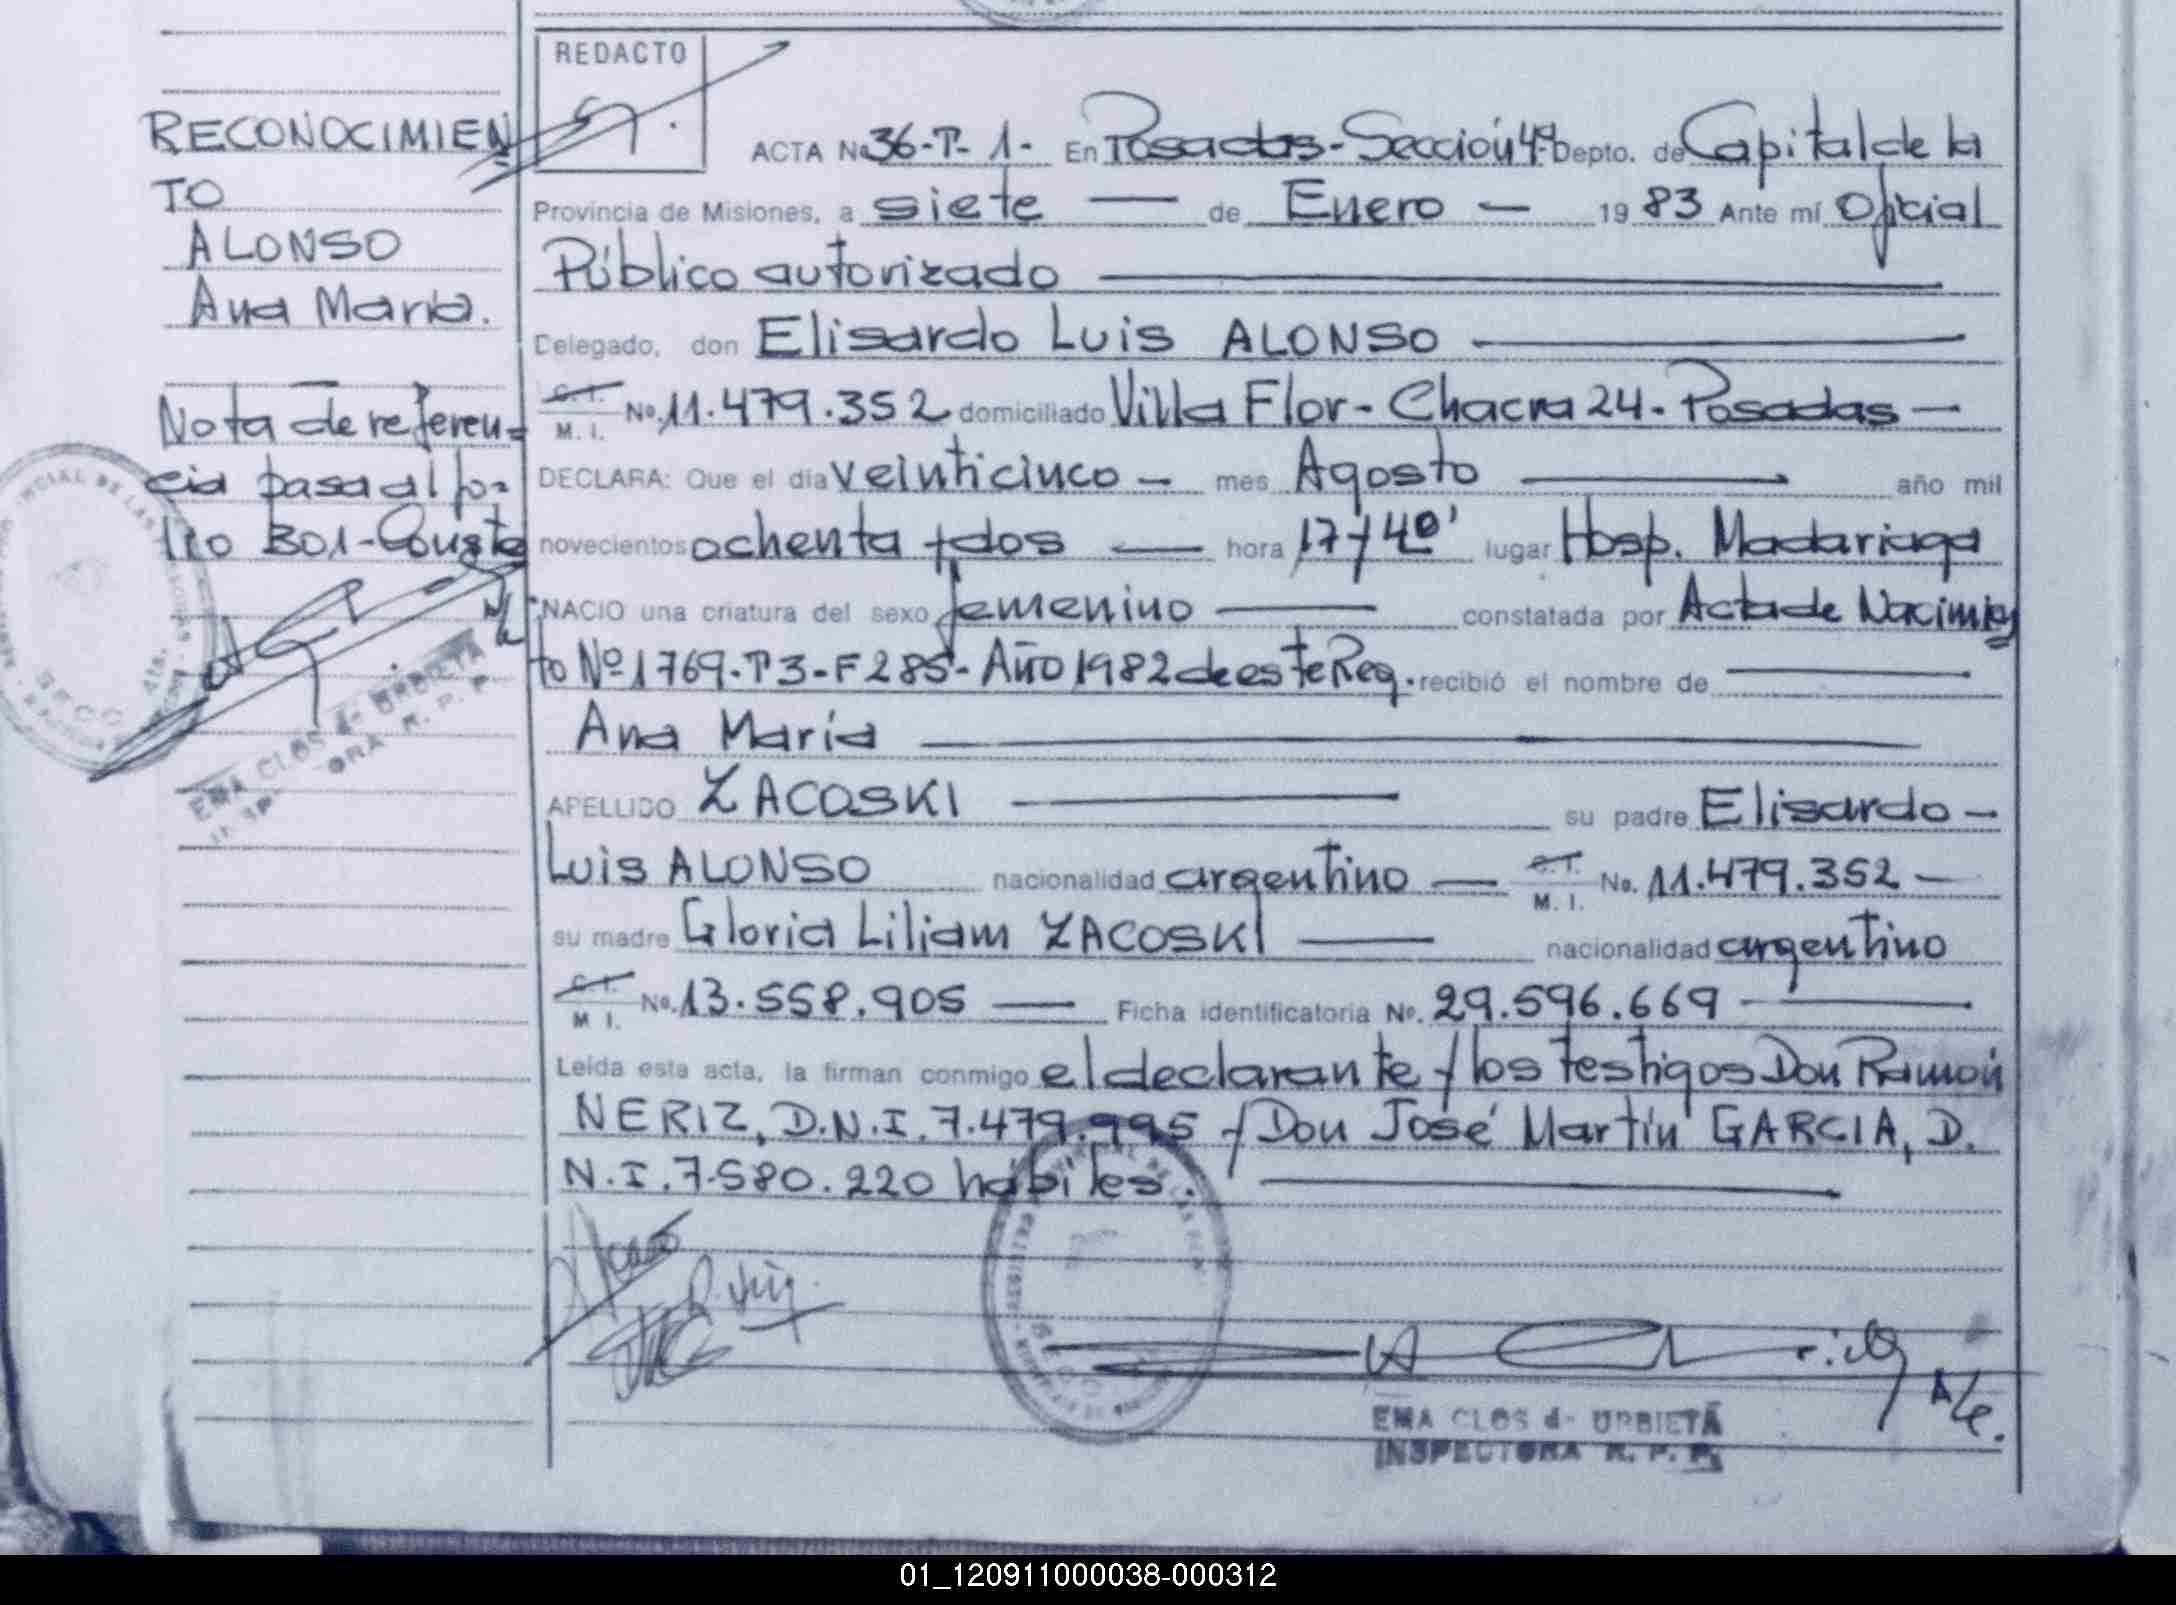 REDACTO
RECONOCIMIEN
TO
ALONSO
Ana María.
Nota de referen=
cia pasa al fo-
lio 301-Conste
ACTA No 36-T-1- En Posadas-Sección 4ª Depto. de Capital de la
Provincia de Misiones, a siete — de Enero — 19 83 Ante mí Oficial
Público autorizado
Delegado, don Elisardo Luis ALONSO
C.I. M. I. No. 11.479.352 domiciliado Villa Flor - Chacra 24 - Posadas —
DECLARA: Que el día veinticinco — mes Agosto — año mil
novecientos ochenta y dos — hora 17 y 40' lugar Hosp. Madariaga
NACIO una criatura del sexo femenino — constatada por Acta de Nacimien
to Nº 1769-T3-F285- Año 1982 de este Reg. recibió el nombre de
Ana María
APELLIDO ZACOSKI — su padre Elisardo —
Luis ALONSO nacionalidad argentino — C.I. M. I. No. 11.479.352 —
su madre Gloria Liliam ZACOSKI — nacionalidad argentino
C.I. M I. No. 13.558.905 — Ficha identificatoria No. 29.596.669
Leída esta acta, la firman conmigo el declarante y los testigos Don Ramón
NERIZ, D.N.I. 7.479.995 y Don José Martín GARCIA, D.
N.I. 7.580.220 hábiles.
EMA CLOS d- URBIETA
INSPECTORA R. P. P.
EMA CLOS d- URBIETA
ORA R. P. P
01_120911000038-000312